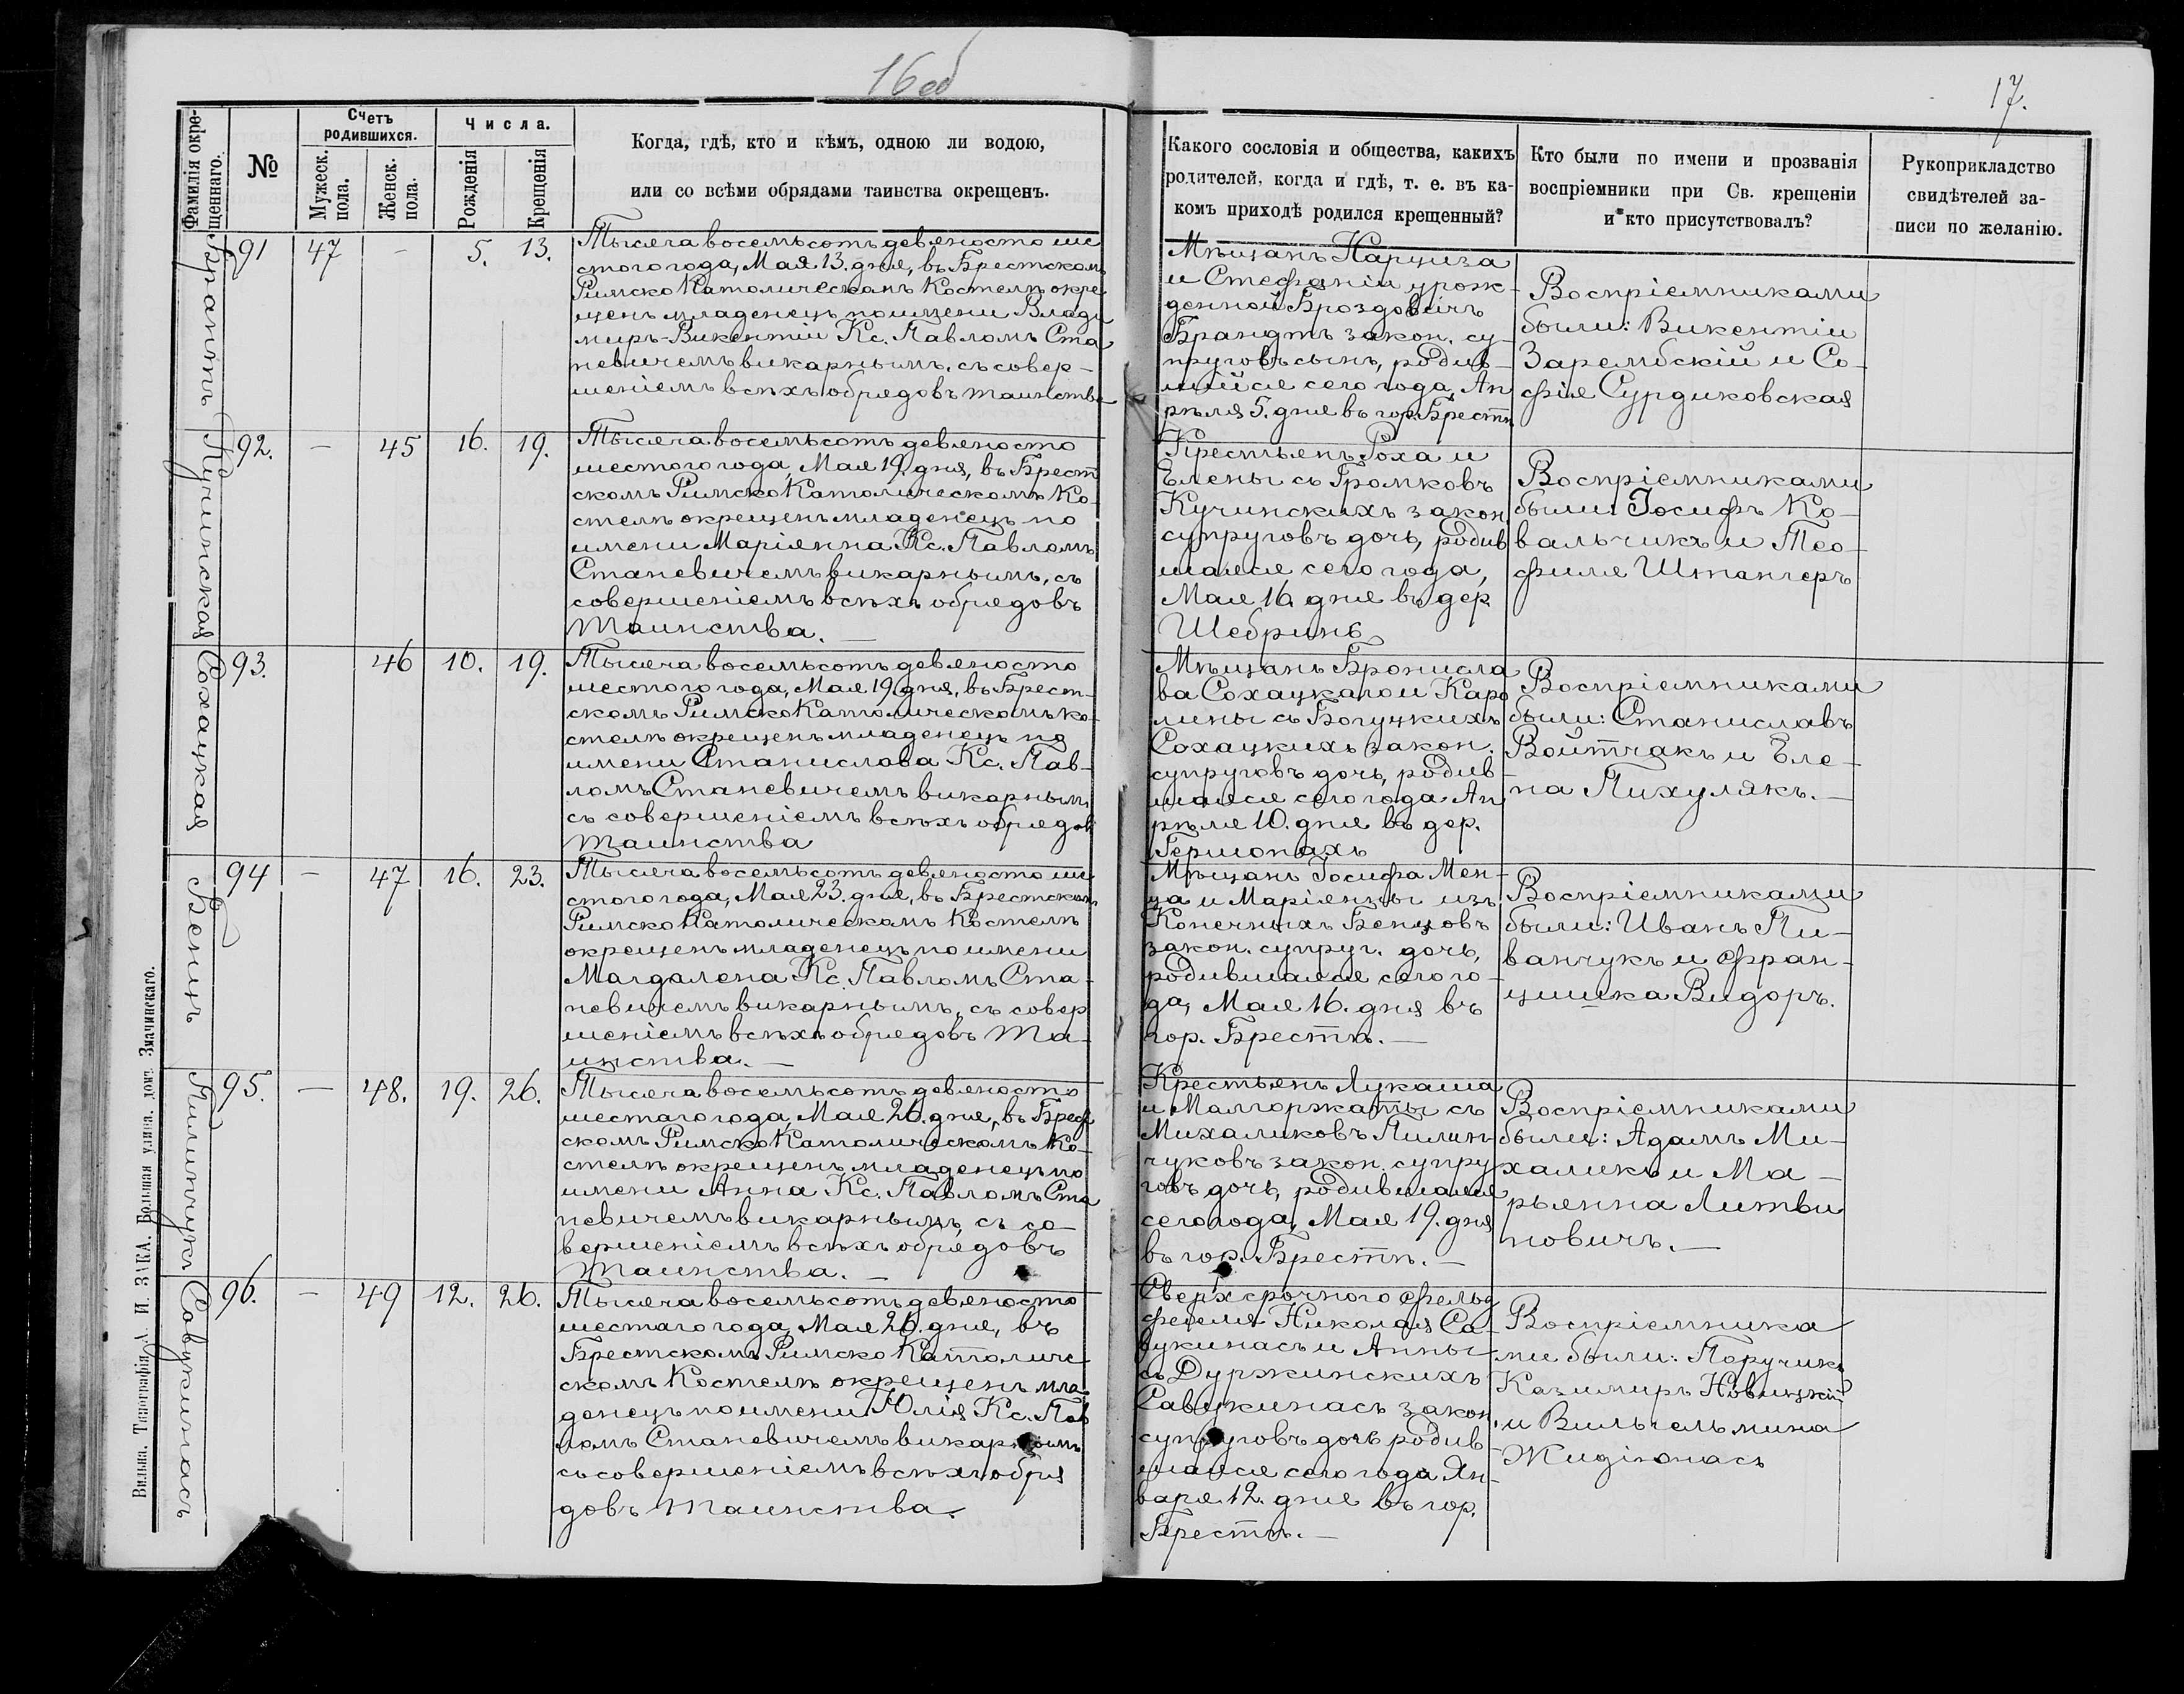 16 об
17.
Фамилія окре-
щеннаго.
№
Счетъ
родившихся.
Мужеск.
пола.
Женск.
пола.
Числа.
Рожденія
Крещенія
Когда, гдѣ, кто и кѣмъ, одною ли водою,
или со всѣми обрядами таинства окрещенъ.
Какого сословія и общества, какихъ
родителей, когда и гдѣ, т. е. въ ка-
комъ приходѣ родился крещенный?
Кто были по имени и прозванія
воспріемники при Св. крещеніи
и кто присутствовалъ?
Рукоприкладство
свидѣтелей за-
писи по желанію.
Брантъ
91
47
-
5.
13.
Тысяча восемьсотъ девяносто ше
стого года, Мая 13. дня, въ Брестскомъ
Римско Католическомъ Костелѣ окре
щенъ младенецъ по имени Влади
миръ-Викентій Кс. Павломъ Ста
невичемъ викарнымъ, съ совер-
шеніемъ всѣхъ обрядовъ таинства
Мѣщанъ Нарциза
и Стефаніи урож-
денной Броздовичъ
Брандтъ закон. су-
пруговъ сынъ, родив-
шійся сего года, Ап
рѣля 5. дня въ гор. Брестѣ
Воспріемниками
были: Викентій
Зарембскій и Со-
фія Сурдиковская
Кучинская
92.
—
45
16.
19.
Тысяча восемьсотъ девяносто
шестого года, Мая 19. дня, въ Брест
скомъ Римско Католическомъ Ко-
стелѣ окрещенъ младенецъ по
имени Маріянна Кс. Павломъ
Станевичемъ викарнымъ, съ
совершеніемъ всѣхъ обрядовъ
Таинства. —
Крестьянъ Роха и
Елены съ Громковъ
Кучинскихъ закон.
супруговъ дочь, родив
шаяся сего года,
Мая 16. дня въ дер.
Шебринѣ
Воспріемниками
были: Іосифъ Ко-
вальчикъ и Тео-
филя Штангеръ
Сохацкая
93.
46
10.
19.
Тысяча восемьсотъ девяносто
шестого года, Мая 19. дня, въ Брест-
скомъ Римско Католическомъ Ко-
стелѣ окрещенъ младенецъ по
имени Станислава Кс. Пав-
ломъ Станевичемъ викарнымъ
съ совершеніемъ всѣхъ обрядовъ
Таинства
Мѣщанъ Бронисла
ва Сохацкаго и Каро
лины съ Богуцкихъ
Сохацкихъ закон.
супруговъ дочь, родив
шаяся сего года Ап
рѣля 10. дня въ дер.
Гершонахъ
Воспріемниками
были: Станиславъ
Войтчакъ и Еле-
на Пихулякъ. —
Бенцъ
94
—
47
16.
23.
Тысяча восемьсотъ девяносто ше
стого года, Мая 23. дня, въ Брестскомъ
Римско Католическомъ Костелѣ
окрещенъ младенецъ по имени
Магдалена Кс. Павломъ Ста-
невичемъ викарнымъ, съ совер
шеніемъ всѣхъ обрядовъ Та-
инства. —
Мѣщанъ Іосифа Бен-
ца и Маріянны изъ
Конечныхъ Бенцовъ
закон. супруг. дочь,
родившаяся сего го-
да, Мая 16. дня въ
гор. Брестѣ. —
Воспріемниками
были: Иванъ Пи-
ванчукъ и Фран-
цишка Видоръ.
Пилипчукъ
95.
—
48.
19.
26.
Тысяча восемьсотъ девяносто
шестаго года, Мая 26. дня, въ Брест
скомъ Римско Католическомъ Ко-
стелѣ окрещенъ младенецъ по
имени Анна Кс. Павломъ Ста
невичемъ викарнымъ, съ со-
вершеніемъ всѣхъ обрядовъ
Таинства. —
Крестьянъ Лукаша
и Малгоржаты съ
Михаликовъ Пилип-
чуковъ закон. супру
говъ дочь, родившаяся
сего года, Мая 19. дня
въ гор. Брестѣ. —
Воспріемниками
были: Адамъ Ми-
халикъ и Ма-
рьянна Литви
новичъ. —
Савукинасъ
96.
—
49
12.
26.
Тысяча восемьсотъ девяносто
шестаго года, Мая 26. дня, въ
Брестскомъ Римско Католиче
скомъ Костелѣ окрещенъ мла
денецъ по имени Юлія Кс. Пав
ломъ Станевичемъ викарнымъ
съ совершеніемъ всѣхъ обря
довъ Таинства.
Сверхсрочного фельд
фебеля Николая Са-
вукинасъ и Анны
съ Дуржинскихъ
Савукинасъ закон.
супруговъ дочь родив
шаяся сего года Ян-
варя 12. дня въ гор.
Брестѣ. —
Воспріемника
ми были: Поручикъ
Казимиръ Новицкій
и Вильгельмина
Жидзюнасъ
Вильна. Типографія А. И. ЗАКА. Большая улица. домъ Змачинскаго.